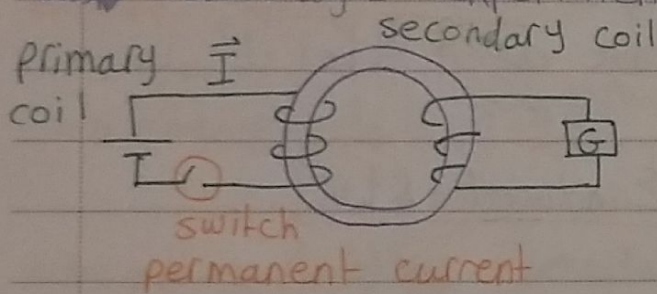 secondary coil
primary I
coil
G
switch
permanent current